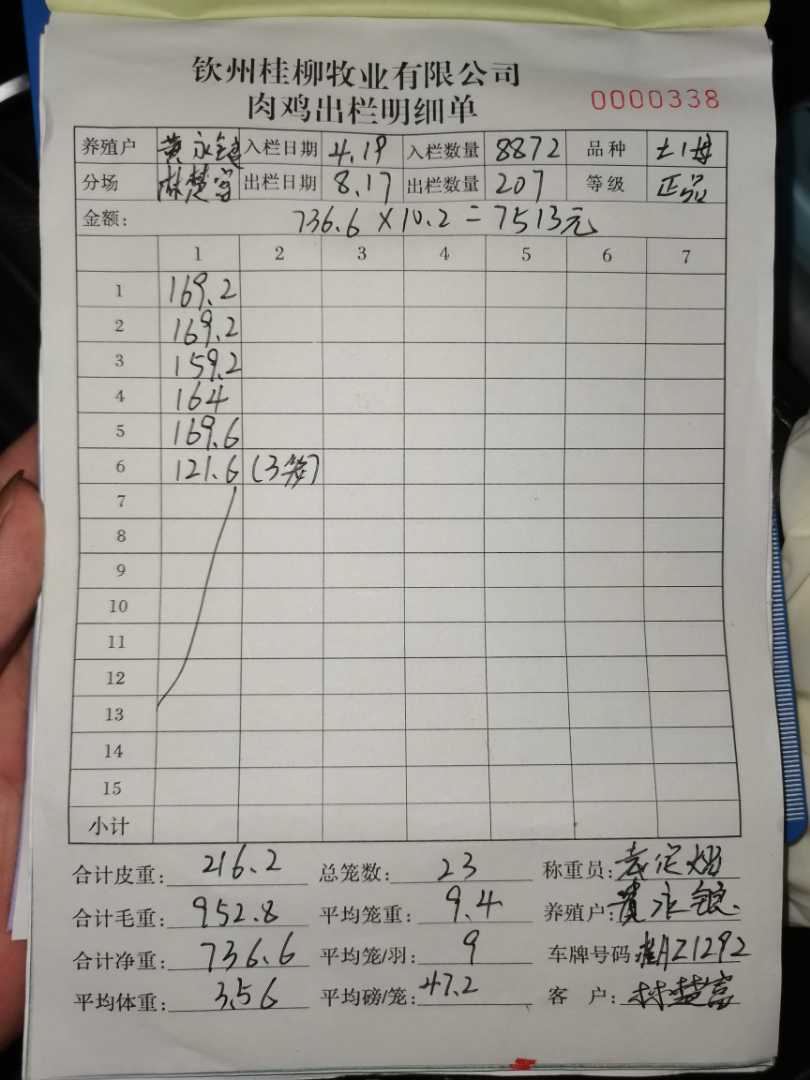 钦州桂柳牧业有限公司
肉鸡出栏明细单 0000338
养殖户 黄永银 入栏日期 4.19 入栏数量 8872 品种 土1母
分场 林楚富 出栏日期 8.17 出栏数量 207 等级 正品
金额: 736.6 × 10.2 = 7513元
1 2 3 4 5 6 7
1 169.2
2 169.2
3 159.2
4 164
5 169.6
6 121.6 (3笼)
7
8
9
10
11
12
13
14
15
小计
合计皮重: 216.2 总笼数: 23 称重员:
合计毛重: 952.8 平均笼重: 9.4 养殖户: 黄永银
合计净重: 736.6 平均笼/羽: 9 车牌号码: Z1292
平均体重: 3.56 平均磅/笼: 47.2 客户: 林楚富